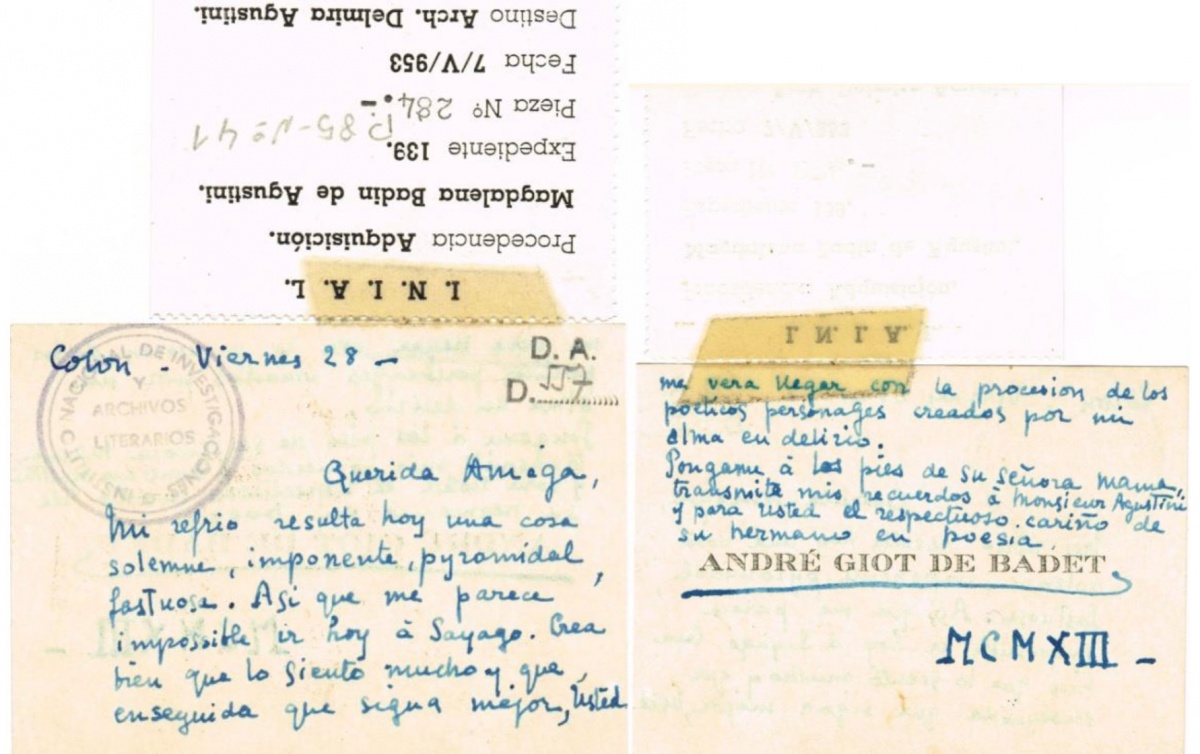 I. N. I. A. L.
Procedencia Adquisición.
Magdalena Badin de Agustini.
Expediente 139.
85-Nº 41
Pieza Nº 284.-
Fecha 7/V/953
Destino Arch. Delmira Agustini.
INSTITUTO NACIONAL DE INVESTIGACIONES
Y
ARCHIVOS
LITERARIOS
D. A.
D.
Colon - Viernes 28 -
Querida Amiga,
Mi refrio resulta hoy una cosa
solemne, imponente, pyramidal,
fastuosa. Asi que me parece
impossible ir hoy à Sayago. Crea
bien que lo siento mucho y que
enseguida que sigua mejor, Usted
I. N. I. A. L.
me vera llegar con la procesion de los
poeticos personages creados por mi
alma en delirio.
Pongame à los pies de su señora mama,
transmite mis recuerdos à Monsieur Agustini
y para usted el respectuoso cariño de
su hermano en poesia
ANDRÉ GIOT DE BADET
MCMXIII -